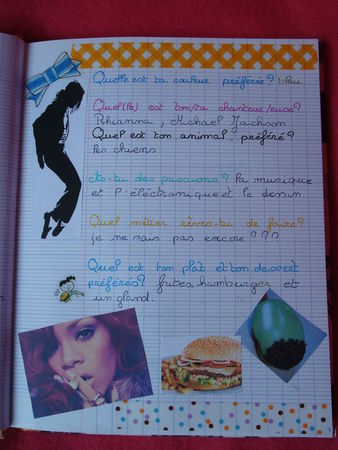 Quelle est ta couleur préférée? bleu
Quel(le) est ton/ta chanteur/euse?
Rhianna, Michael Jackson
Quel est ton animal préféré?
les chiens
As-tu des passions? la musique
et l'éléctronique et le dessin
Quel métier rêves-tu de faire?
je ne sais pas encore???
Quel est ton plat et ton dessert
préférés? frites, hamburger et
un gland.